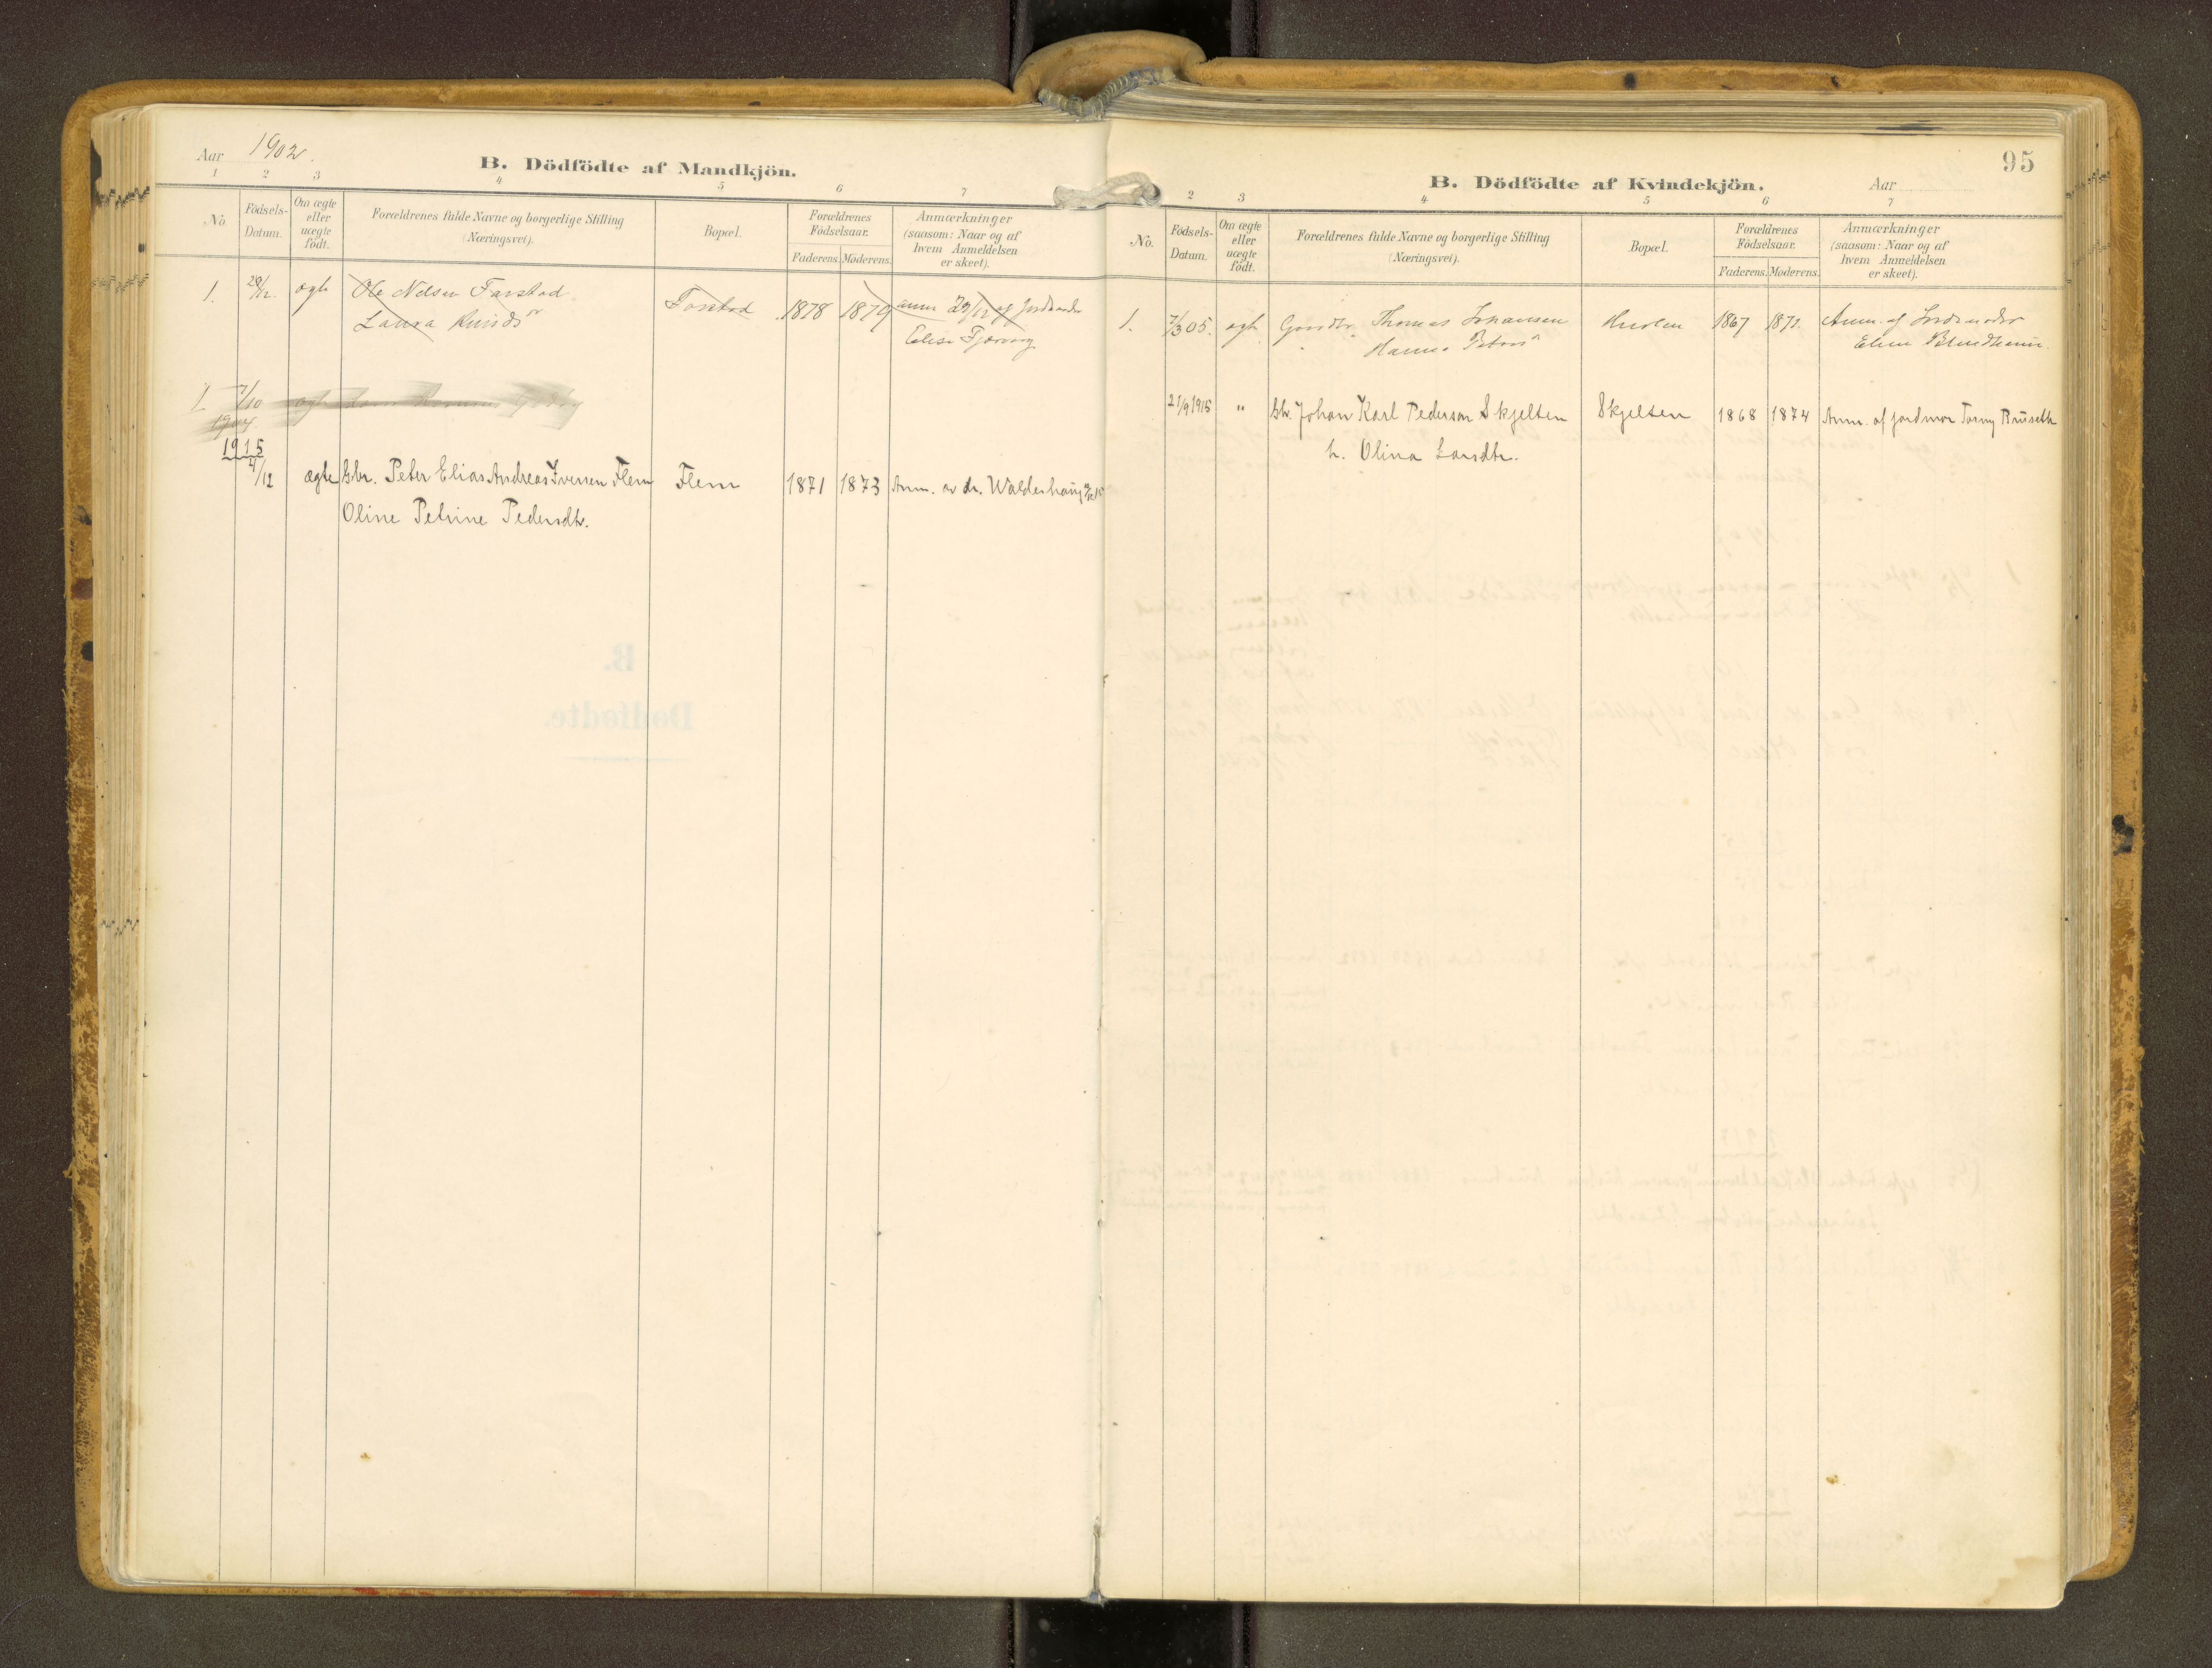 Aar 1902.
B. Dödfödte af Mandkjön.
1 2 3 4 5 6 7
No
Födsels-
Datum.
Om ægte
eller
uægte
födt.
Forældrenes fulde Navne og borgerlige Stilling
(Næringsvei).
Bopæl.
Forældrenes
Födselsaar.
Faderens. Moderens.
Anmærkninger
(saasom: Naar og af
hvem Anmeldelsen
er skeet).
1. 29/12. ægte Ole Nelsen Farstad Farstad 1878 1879 anm 29/12 af Jordmoder
Laura Knudsdr Elise Fjørtoft
1 7/10 ægte
1904
1915
4/12 ægte Gbr. Peter Elias Andreas Iversen Flem Flem 1871 1873 Anm. av dr. Waldeshaug
Oline Petrine Pedersdtr.
95
B. Dödfödte af Kvindekjön.
Aar
2 3 4 5 6 7
No.
Födsels-
Datum.
Om ægte
eller
uægte
födt.
Forældrenes fulde Navne og borgerlige Stilling
(Næringsvei).
Bopæl.
Forældrenes
Födselsaar.
Faderens. Moderens.
Anmærkninger
(saasom: Naar og af
hvem Anmeldelsen
er skeet).
1. 7/3 05. ægte Gaardbr. Thomas Johansen 1867 1871. Anm. af Jordmoder
Hanna
21/9 1915 " Gbr. Johan Karl Pederson Skjelten Skjelten 1868 1874 Anm. af jordmor Torny Bruseth
h. Olina Larsdtr.